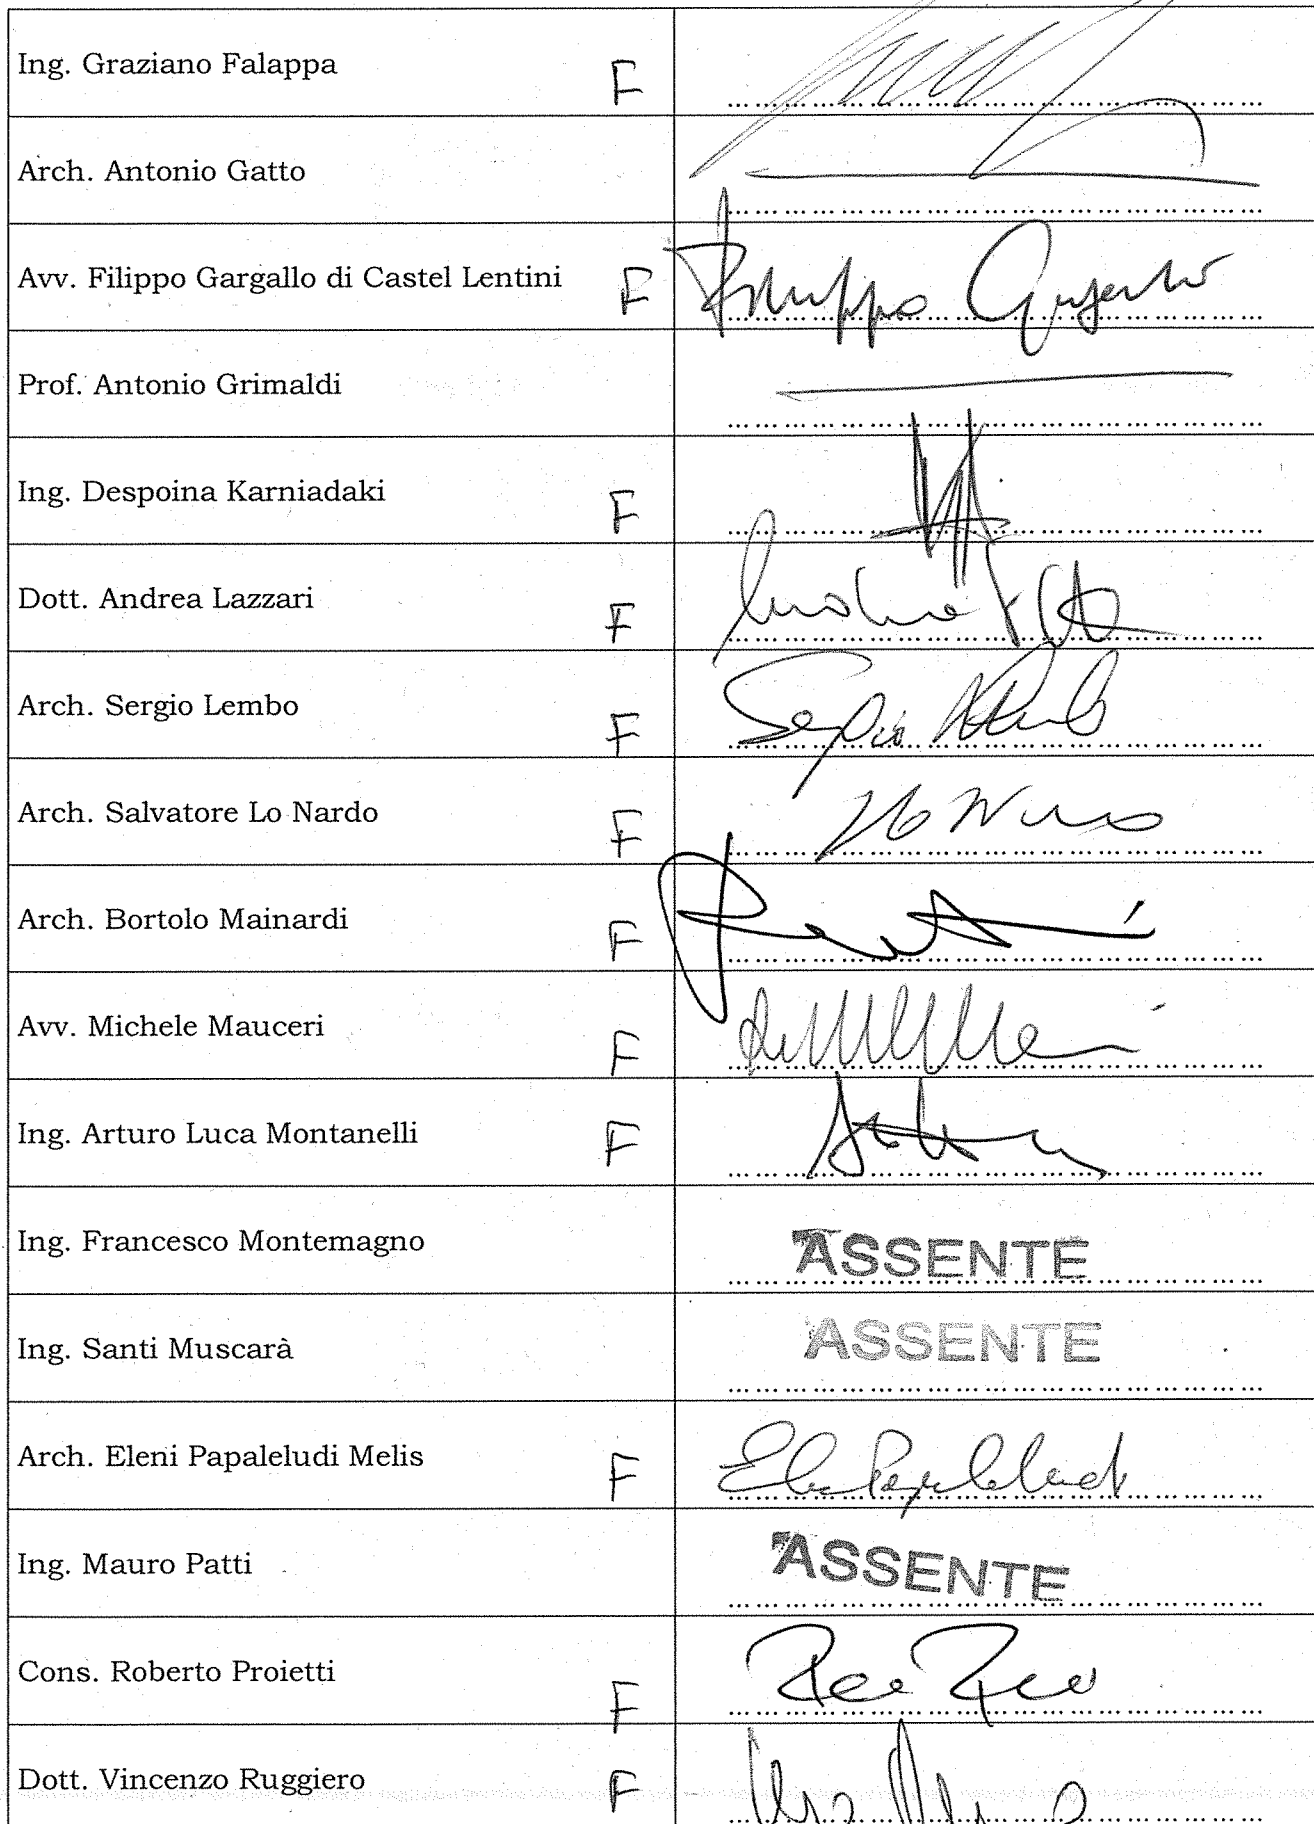 Ing. Graziano Falappa F
Arch. Antonio Gatto
Avv. Filippo Gargallo di Castel Lentini F Filippo Gargallo
Prof. Antonio Grimaldi
Ing. Despoina Karniadaki F
Dott. Andrea Lazzari F
Arch. Sergio Lembo F Sergio Lembo
Arch. Salvatore Lo Nardo F
Arch. Bortolo Mainardi F
Avv. Michele Mauceri F
Ing. Arturo Luca Montanelli F
Ing. Francesco Montemagno ASSENTE
Ing. Santi Muscarà ASSENTE
Arch. Eleni Papaleludi Melis F
Ing. Mauro Patti ASSENTE
Cons. Roberto Proietti F
Dott. Vincenzo Ruggiero F